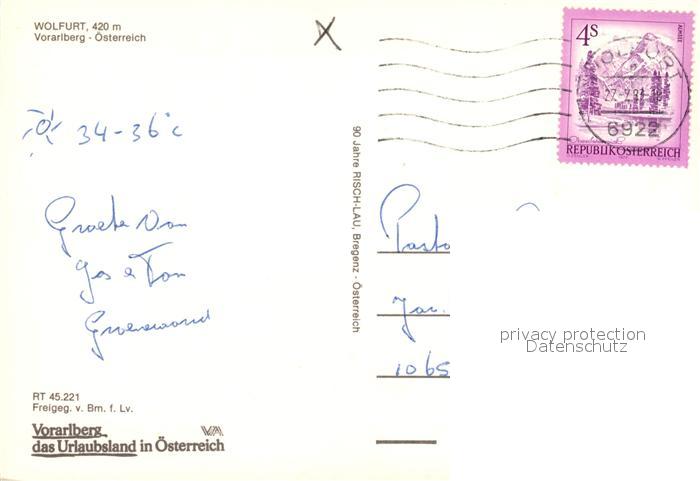 WOLFURT, 420 m
Vorarlberg - Österreich
4 S
ALMSEE
WOLFURT
6922
REPUBLIK ÖSTERREICH
34-36°C
Groete van
Jos & Ton
Groenewoud
90 Jahre RISCH-LAU, Bregenz - Österreich
Pasto
Jac.
1065
privacy protection
Datenschutz
RT 45.221
Freigeg. v. Bm. f. Lv.
Vorarlberg
das Urlaubsland in Österreich